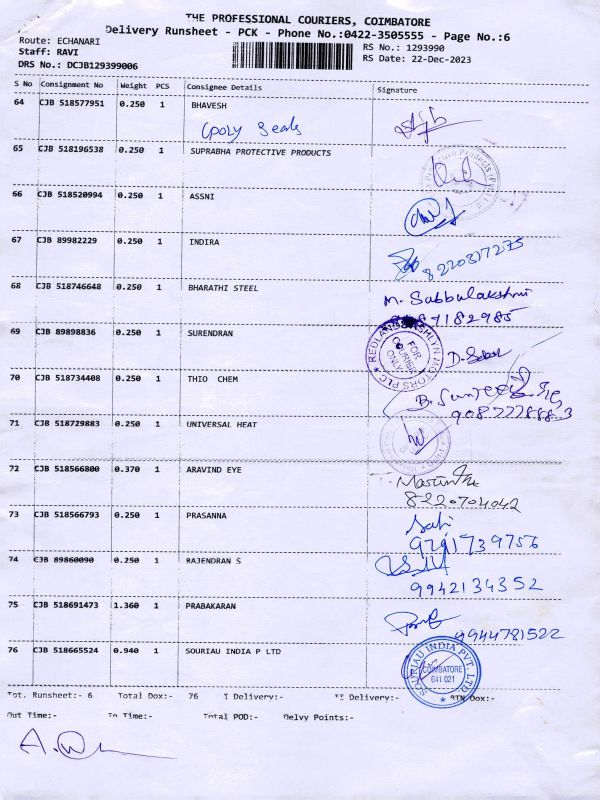 THE PROFESSIONAL COURIERS, COIMBATORE
Delivery Runsheet - PCK - Phone No.:0422-3505555 - Page No.:6
Route: ECHANARI
RS No.: 1293990
Staff: RAVI
RS Date: 22-Dec-2023
DRS No.: DCJB129399006
S No Consignment No Weight PCS Consignee Details Signature
64 CJB 518577951 0.250 1 BHAVESH
Cpoly Seals
65 CJB 518196538 0.250 1 SUPRABHA PROTECTIVE PRODUCTS
66 CJB 518520994 0.250 1 ASSNI
67 CJB 89982229 0.250 1 INDIRA
8220317275
68 CJB 518746648 0.250 1 BHARATHI STEEL
M. Subbulakshmi
87182985
69 CJB 89898836 0.250 1 SURENDRAN
FOR COURIER ONLY
70 CJB 518734408 0.250 1 THIO CHEM
71 CJB 518729883 0.250 1 UNIVERSAL HEAT
72 CJB 518566800 0.370 1 ARAVIND EYE
8220704042
73 CJB 518566793 0.250 1 PRASANNA
9791739756
74 CJB 89860090 0.250 1 RAJENDRAN S
9942134352
75 CJB 518691473 1.360 1 PRABAKARAN
9944781522
76 CJB 518665524 0.940 1 SOURIAU INDIA P LTD
SOURIAU INDIA PVT. LTD.
COIMBATORE
641 021
Tot. Runsheet:- 6 Total Dox:- 76 I Delivery:- II Delivery:- RTN Dox:-
Out Time:- In Time:- Total POD:- Delvy Points:-